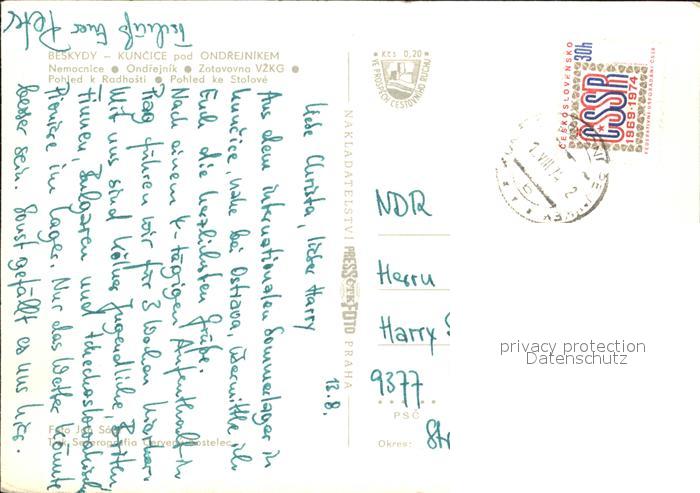 BESKYDY – KUNČICE pod ONDŘEJNÍKEM
Nemocnice ● Ondřejník ● Zotavovna VŽKG ●
Pohled k Radhošti ● Pohled ke Stolové
Kčs 0,20
VE PROSPĚCH CESTOVNÍHO RUCHU
ČESKOSLOVENSKO
30h
ČSSR
1969·1974
FEDERATIVNÍ USPOŘÁDÁNÍ ČSSR
NAKLADATELSTVÍ PRESSFOTO PRAHA
13.8.
Liebe Christa, lieber Harry
Aus dem internationalen Sommerlager in
Kunčice, nahe bei Ostrava, übermittle ich
Euch die herzlichsten Grüße.
Nach einem 4-tägigen Aufenthalt in
Prag führen wir für 3 Wochen hierher.
Mit uns sind Kölner Jugendliche, Briten
Finnen, Bulgaren und tschechoslowakische
Pioniere im Lager. Nur das Wetter könnte
besser sein. Sonst gefällt es uns hier.
Tschüß Euer Peter
NDR
Herrn
Harry
9377
PSČ
Okres:
Foto Jan
Tisk Severografia Červený Kostelec
privacy protection
Datenschutz